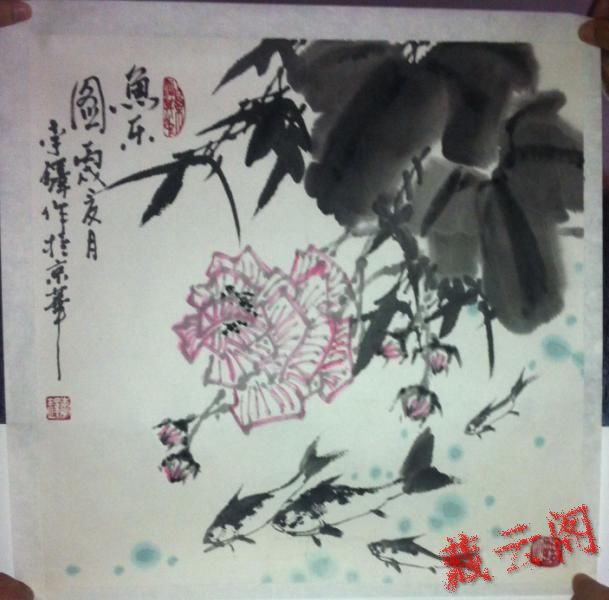 魚乐
图丙戌夏月
李鐸作於京華
藏云阁